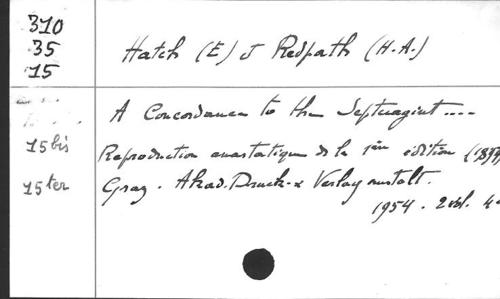 310
35
15
Hatch (E) & Redpath (H.A.)
A Concordance to the Septuagint....
15bis
Reproduction anastatique de la 1ère édition (1897
15ter
Graz. Akad. Druck- & Verlaganstalt.
1954. 2vol. 4°